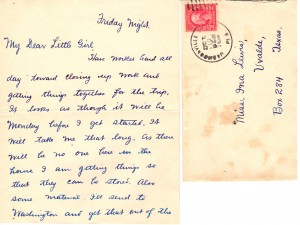 Friday Night
My Dear Little Girl,
Have worked hard all
day toward closing up work and
getting things together for the trip.
It looks as though it will be
Monday before I get started. It
will take me that long. As there
will be no one here in the
house I am getting things so
that they can be stored. Also
some material I'll send to
Washington and get that out of the
Miss Ina Lewis,
Uvalde,
Texas,
Box 284